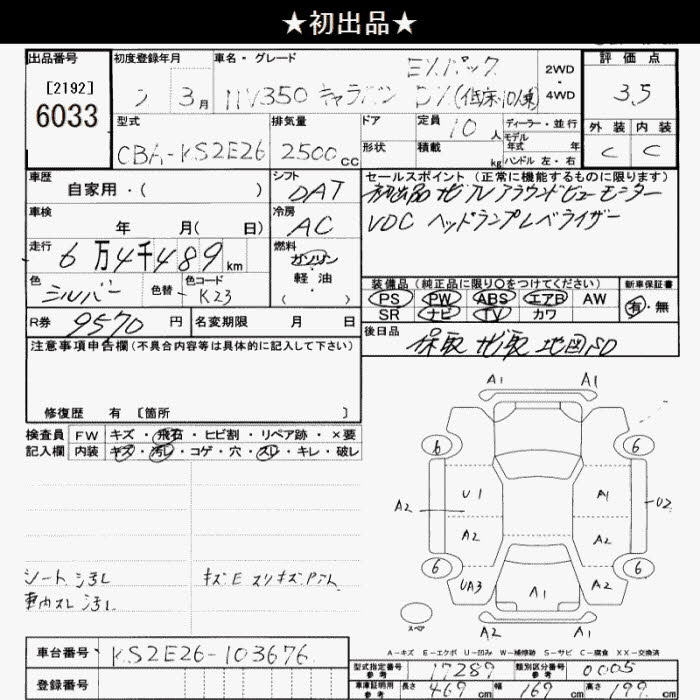 ★初出品★
出品番号
[2192]
6033
初度登録年月
3月
車名・グレード
EXパック
NV350 キャラバン DX(低床・10人乗)
2WD
・
4WD
評価点
3.5
外装 内装
C C
型式
CBA-KS2E26
排気量
2500cc
ドア
形状
定員
10人
積載
kg
ディーラー・並行
モデル
年式 年
ハンドル 左・右
車歴
自家用・( )
シフト
DAT
セールスポイント (正常に機能するものに限ります)
初出品 地デジTV アラウンドビューモニター
VDC ヘッドランプレベライザー
車検
年 月( 日)
冷房
AC
走行
6万4千489km
燃料
ガソリン
・
軽油
( )
色
シルバー
色替
色コード
K23
装備品 (純正品に限り○をつけてください)
PS PW ABS エアB AW
SR ナビ TV カワ
新車保証書
有・無
R券
9570円
名変期限 月 日
後日品
保取 ナビ取 地図SD
注意事項申告欄(不具合内容等は具体的に記入して下さい)
修復歴 有 〔箇所 〕
検査員
記入欄
FW キズ・飛石・ヒビ割・リペア跡・×要
内装 キズ・汚レ・コゲ・穴・スレ・キレ・破レ
シート汚レ
車内スレ汚レ
A1 A1
6 6
U1 A1
A2 U2
A2 A2
6 6
UA3 A1 A2
スペア
A2 A1
A-キズ E-エクボ U-凹み W-補修跡 S-サビ C-腐食 XX-交換済
車台番号
KS2E26-103676
登録番号
型式指定番号
参考
17289
類別区分番号
参考
0005
車庫証明用
参考
長さ 469cm 幅 169cm 高さ 199cm